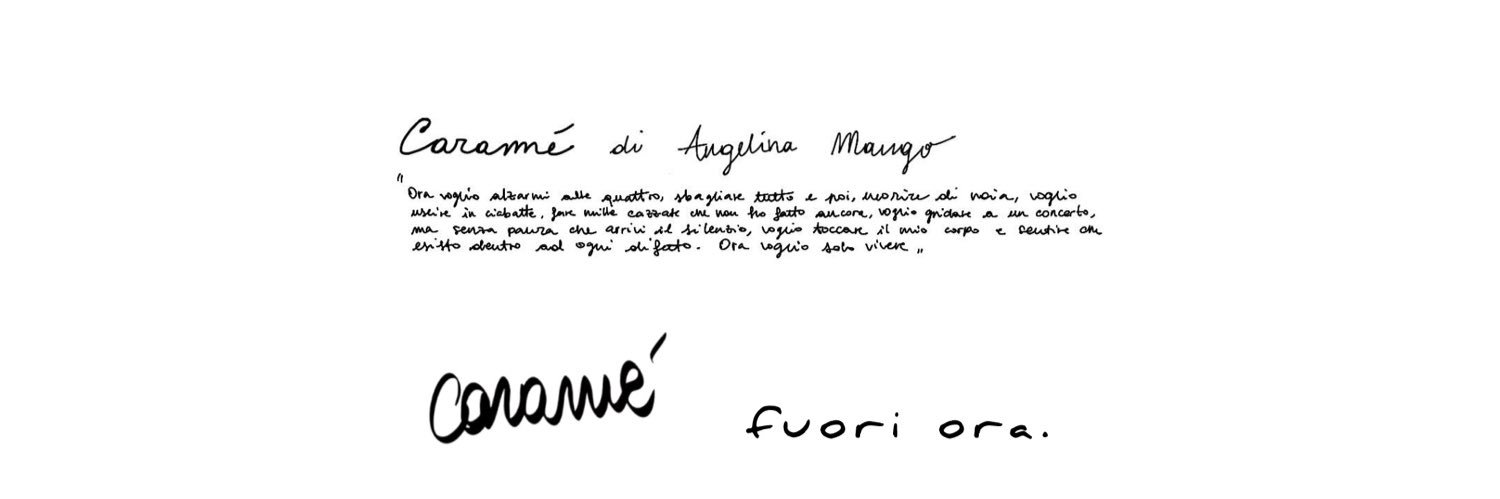 Caramé di Angelina Mango
"Ora voglio alzarmi alle quattro, sbagliare tutto e poi, morire di noia, voglio
uscire in ciabatte, fare mille cazzate che non ho fatto ancora, voglio gridare a un concerto,
ma senza paura che arrivi il silenzio, voglio toccare il mio corpo e sentire che
esisto dentro ad ogni difetto. Ora voglio solo vivere"
caramé
fuori ora.